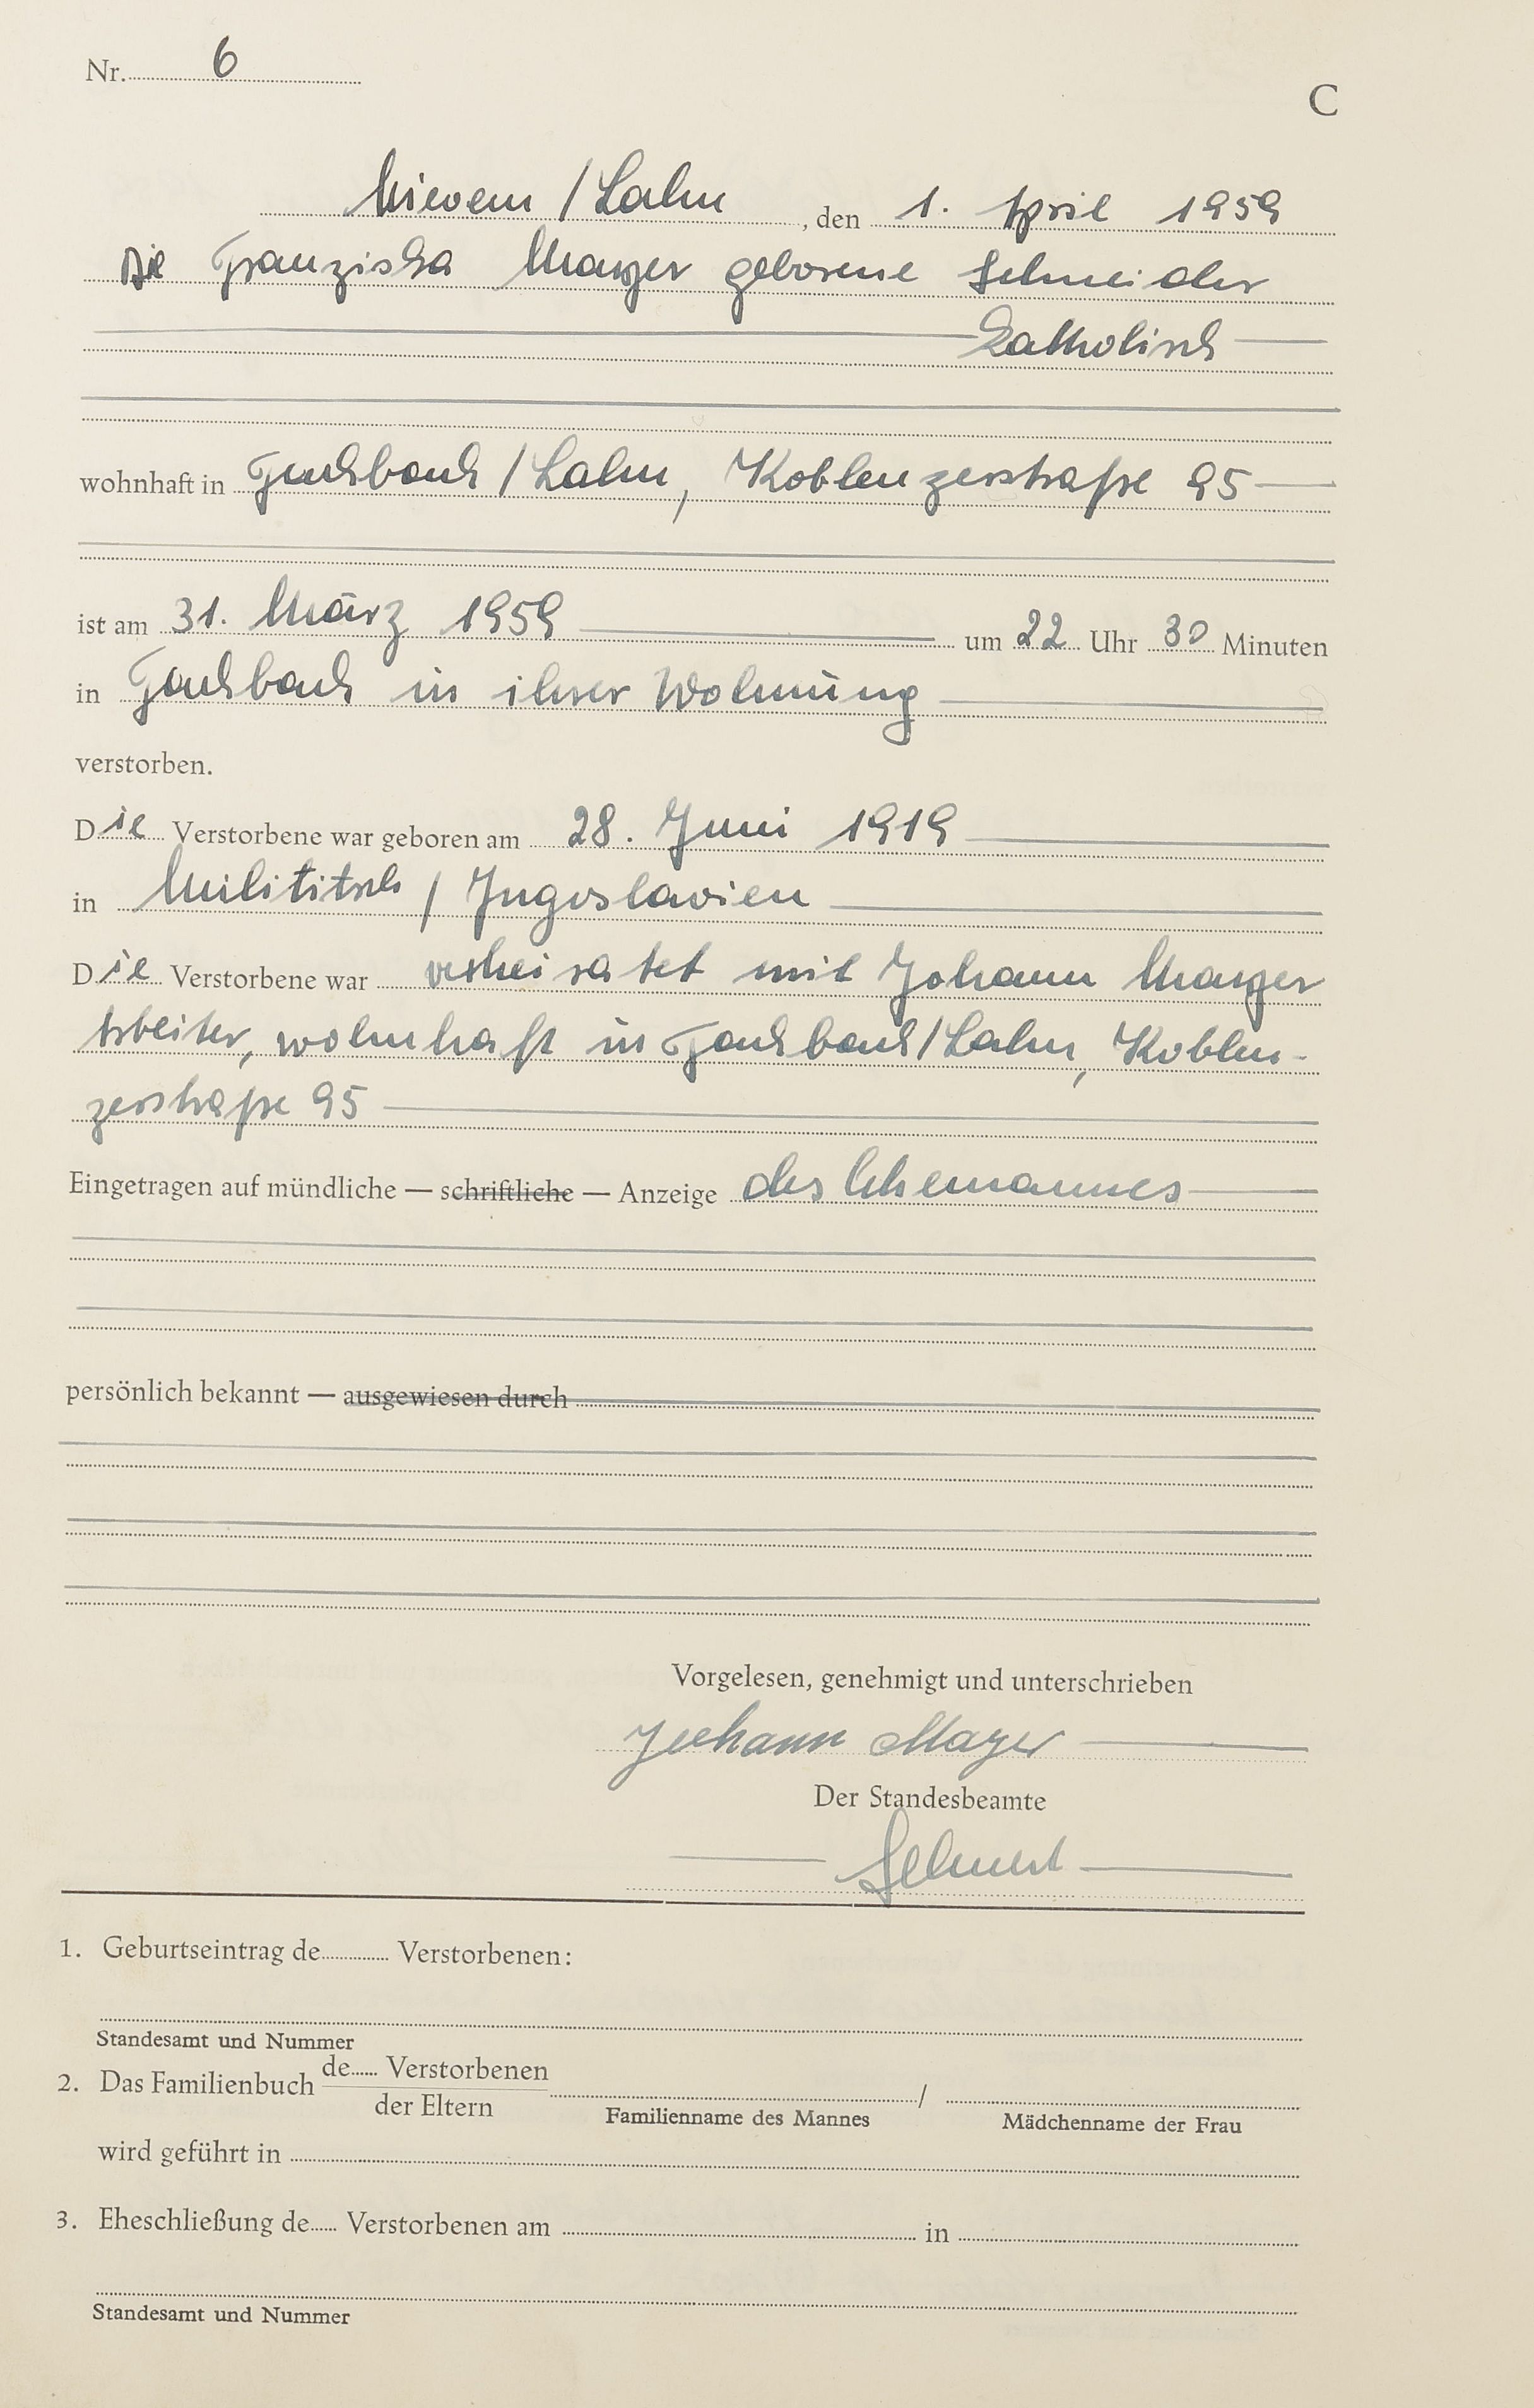 Nr. 6
C
Nievern / Lahn, den 1. April 1959
Die Franziska Mayer geborene Schneider
katholisch
wohnhaft in Fachbach / Lahn, Koblenzerstraße 95
ist am 31. März 1959 um 22 Uhr 30 Minuten
in Fachbach in ihrer Wohnung
verstorben.
Die Verstorbene war geboren am 28. Juni 1919
in Milititsch / Jugoslavien
Die Verstorbene war verheiratet mit Johann Mayer
Arbeiter, wohnhaft in Fachbach/Lahn, Koblen-
zerstraße 95
Eingetragen auf mündliche — schriftliche — Anzeige des Ehemannes
persönlich bekannt — ausgewiesen durch
Vorgelesen, genehmigt und unterschrieben
Johann Mayer
Der Standesbeamte
1. Geburtseintrag de Verstorbenen:
Standesamt und Nummer
2. Das Familienbuch de Verstorbenen
der Eltern
/
Familienname des Mannes Mädchenname der Frau
wird geführt in
3. Eheschließung de Verstorbenen am in
Standesamt und Nummer